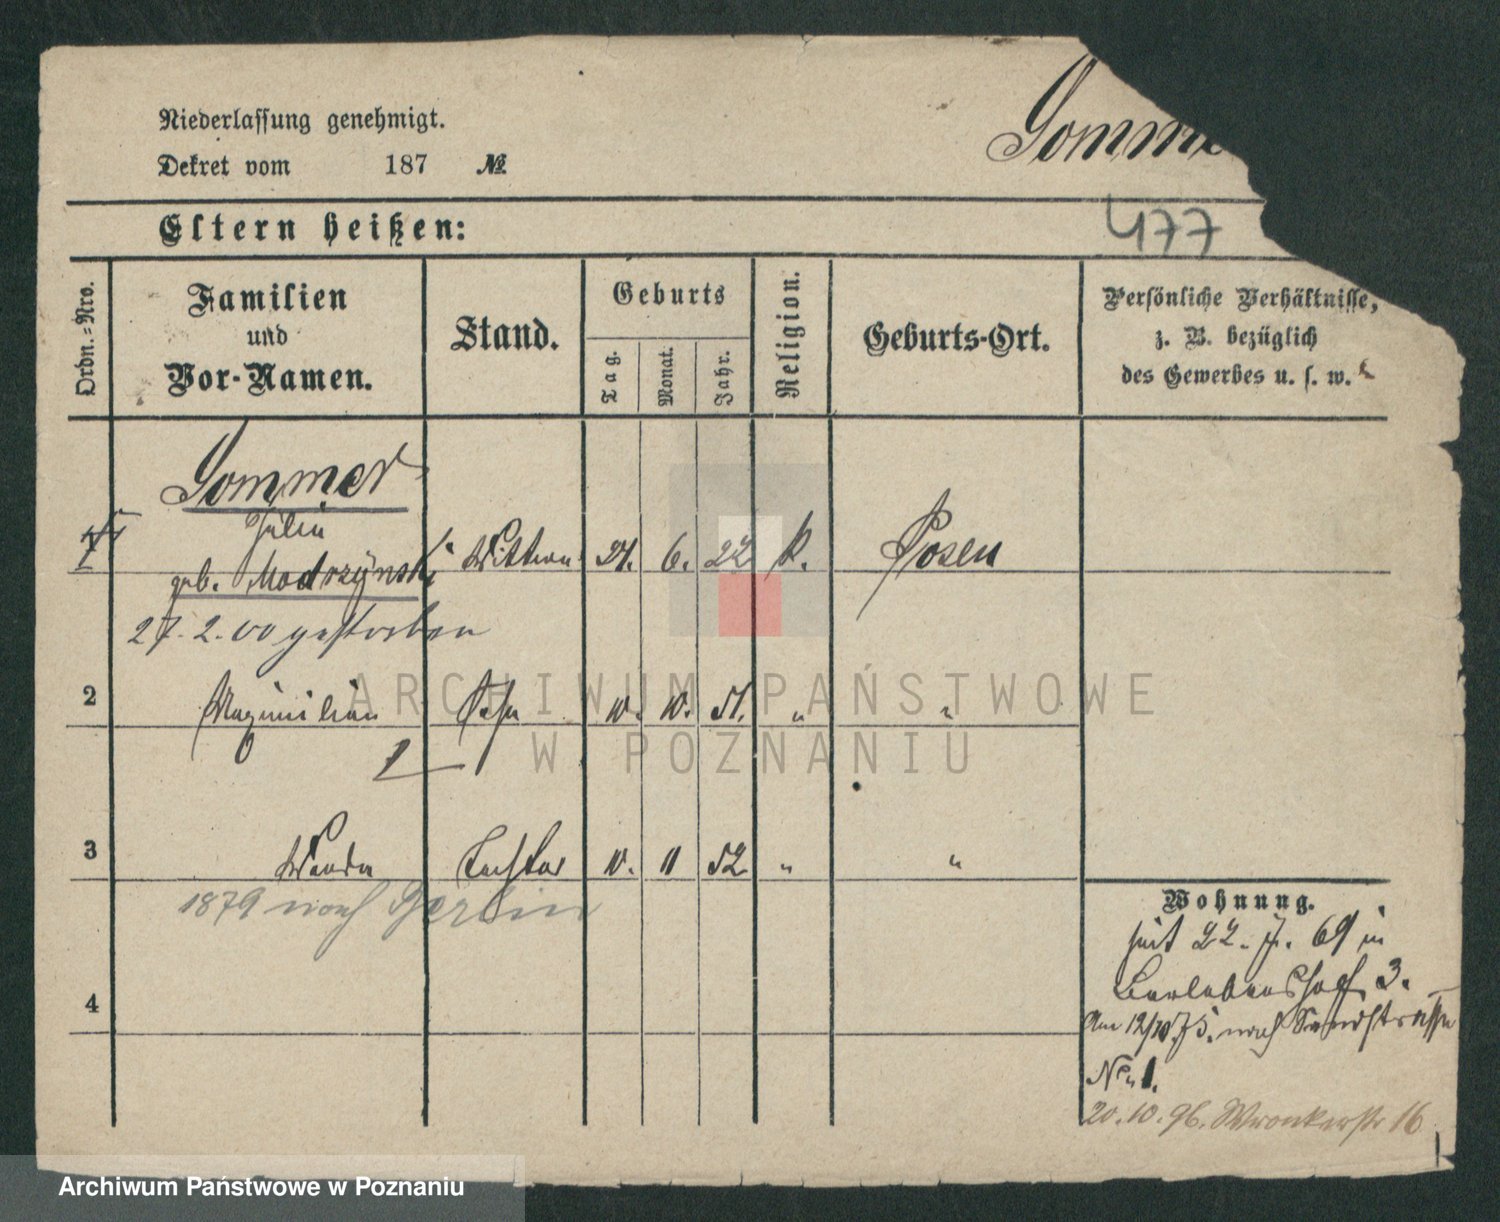 Niederlassung genehmigt.
Dekret vom 187 №
Somme
Eltern heißen:
477
Ordn.=Nro.
Familien
und
Vor-Namen.
Stand.
Geburts
Tag.
Monat.
Jahr.
Religion.
Geburts-Ort.
Persönliche Verhältnisse,
z. B. bezüglich
des Gewerbes u. s. w.
Sommer
1 Julia
geb. Modrzynski Wittwe 21. 6. 22 k. Posen
27. 2. 00 gestorben
2 Maximilian Sohn 10. 10. 51. " "
3 Wanda Tochter 10. 11 52 " "
1879 nach Berlin
4
Wohnung.
seit 22. 7. 69 in
3.
Am 12/10 75. nach Sandstrasse
No 1.
20. 10. 96. Wronkerstr 16
ARCHIWUM PAŃSTWOWE
W POZNANIU
Archiwum Państwowe w Poznaniu